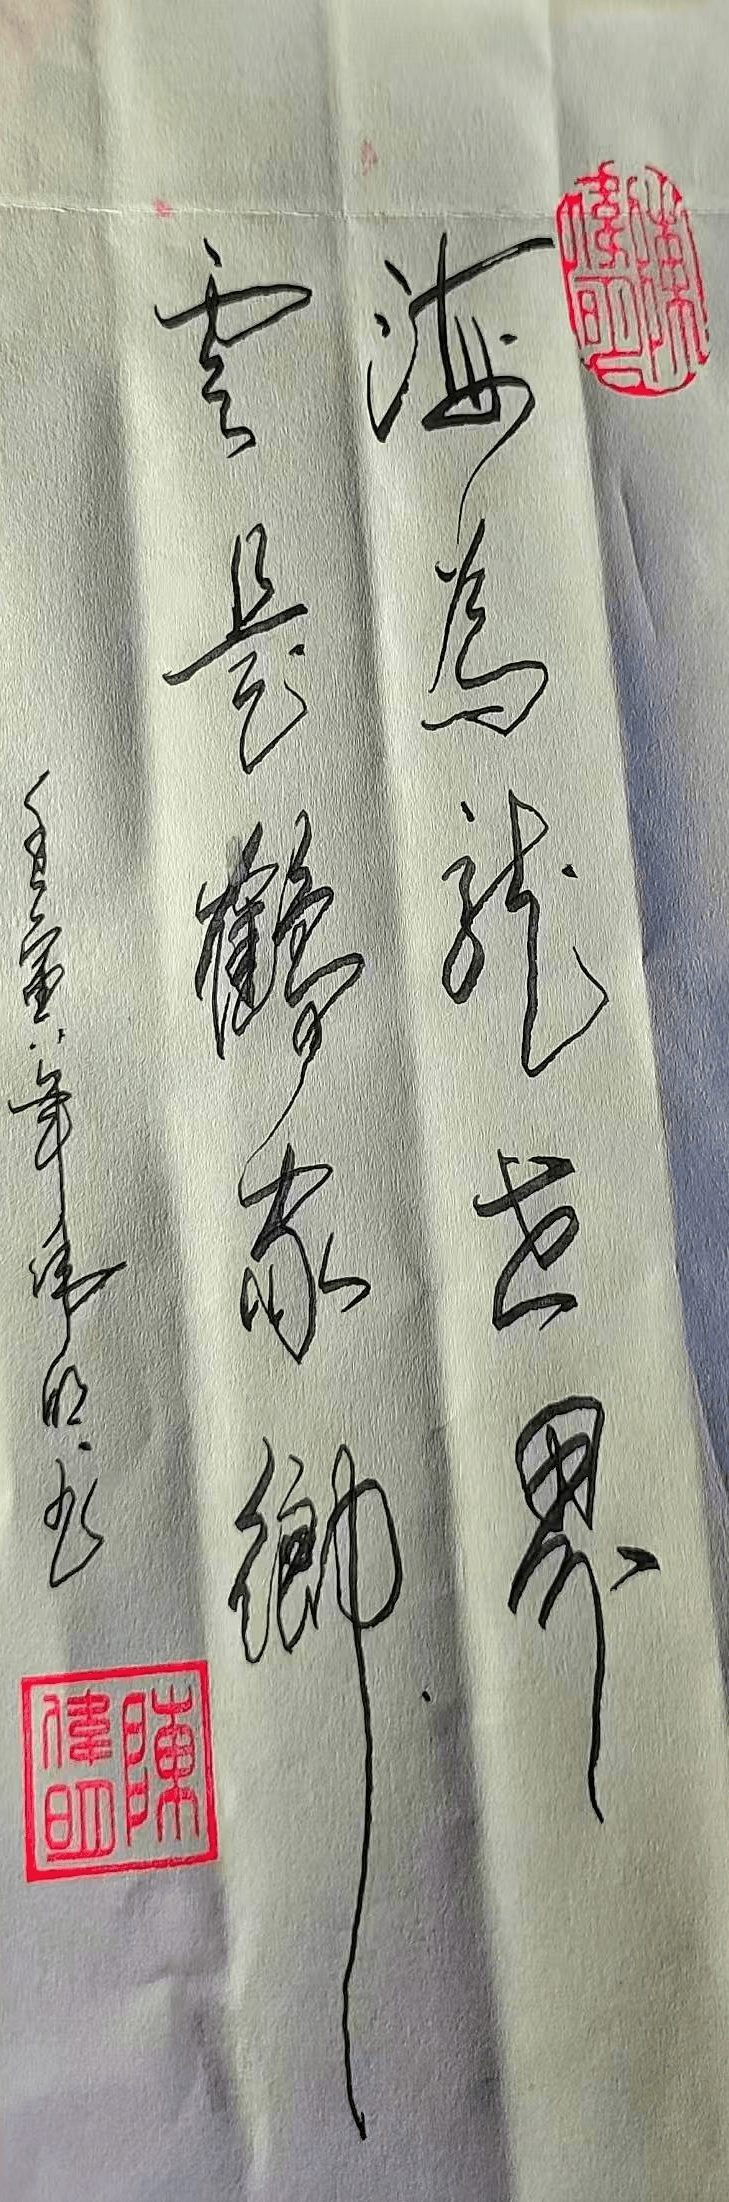 陳偉明
海為龍世界
雲是鶴家鄉
壬寅年偉明書
陳偉明